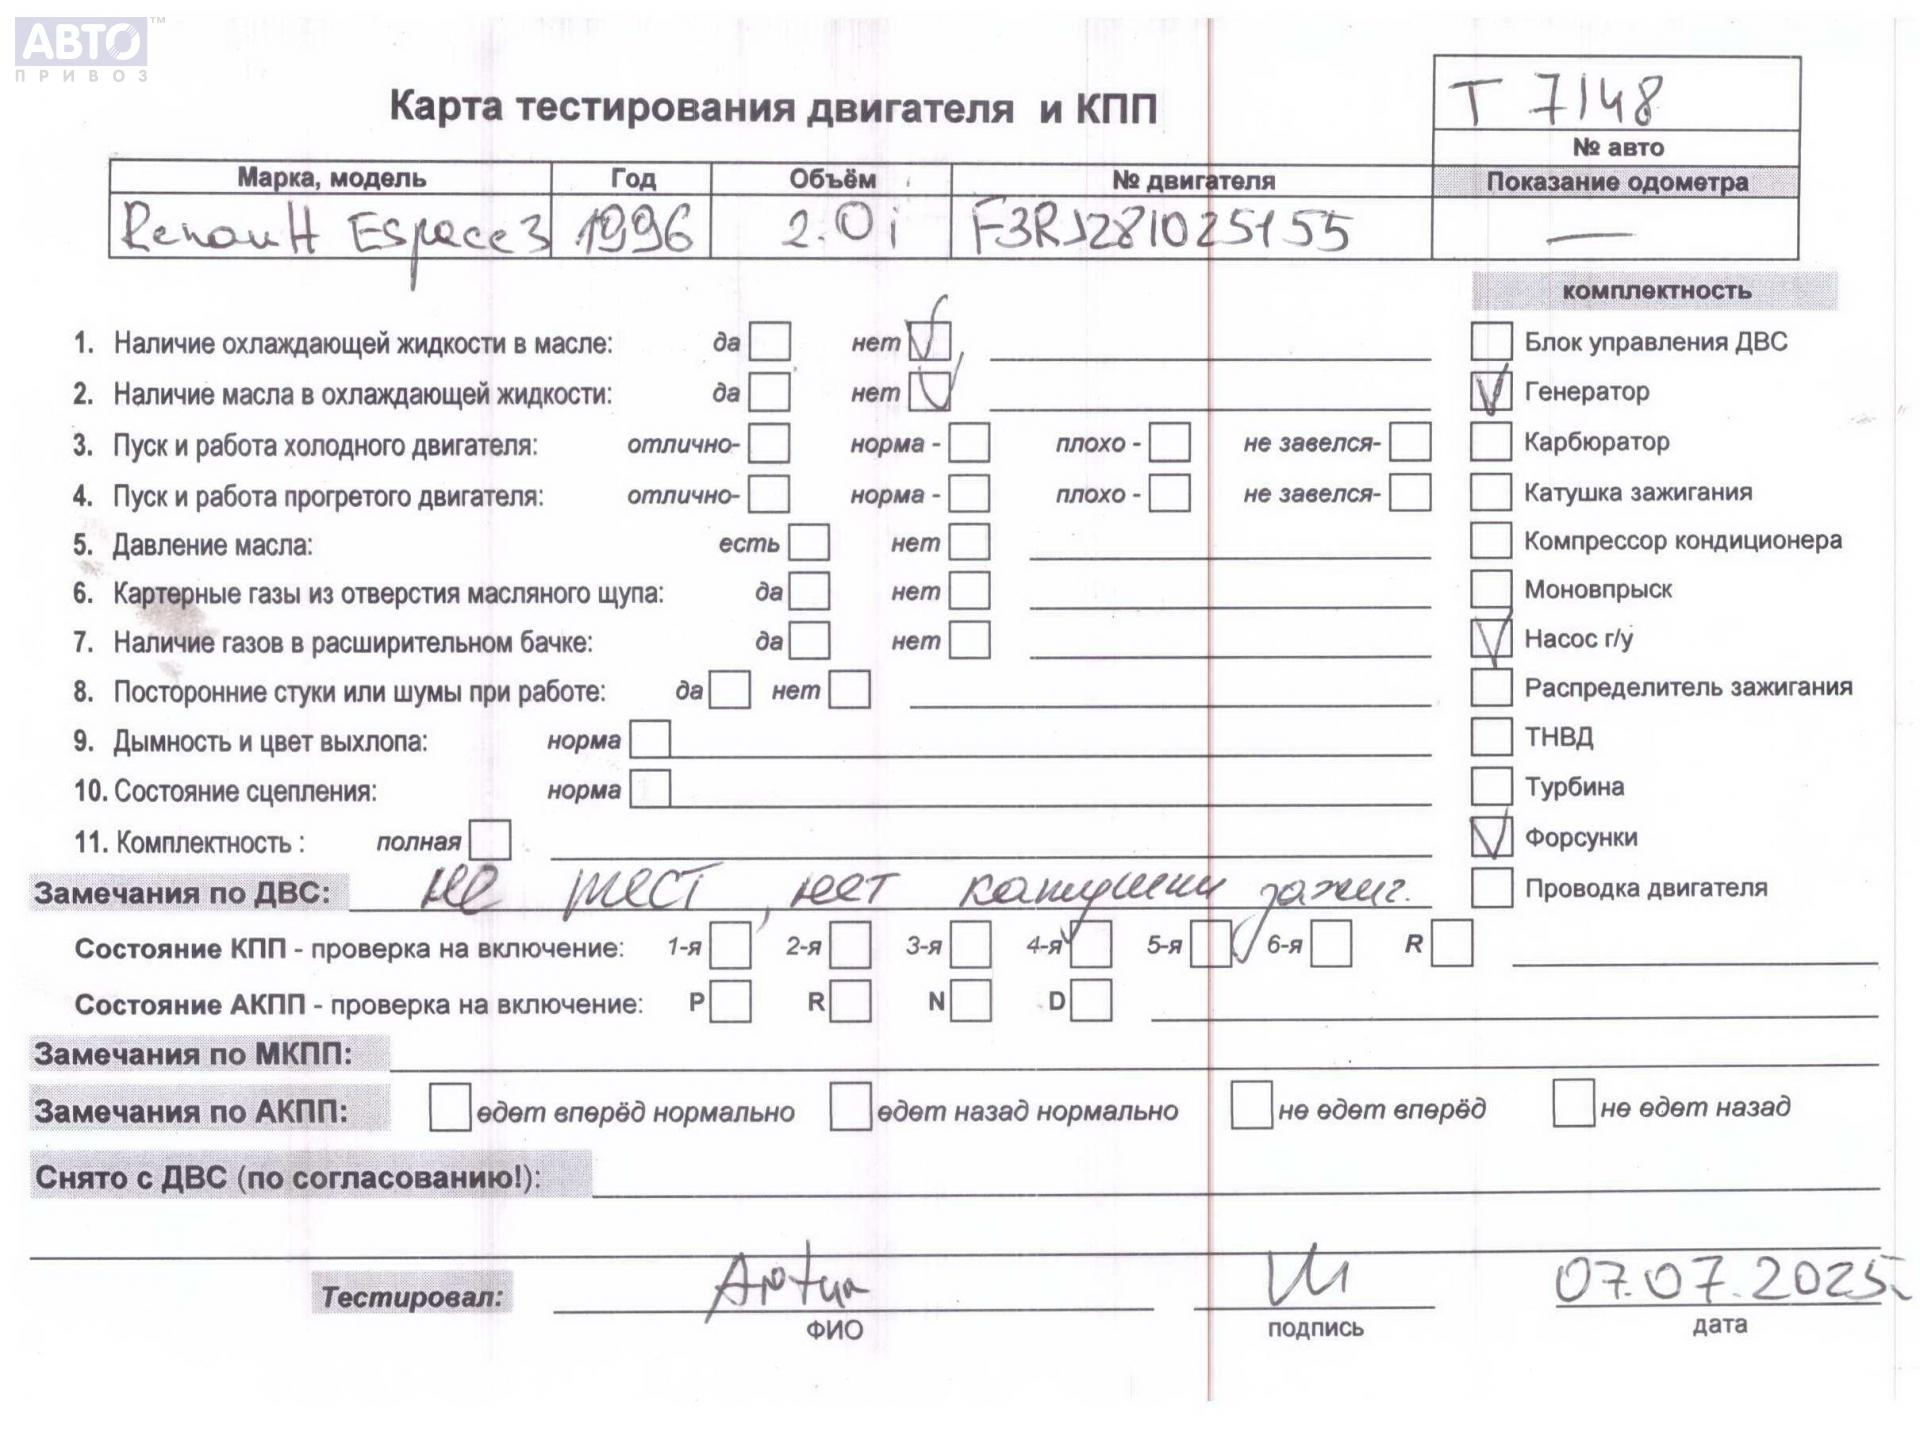 АВТО™
ПРИВОЗ
Карта тестирования двигателя и КПП
Т 7148
№ авто
Марка, модель Год Объём № двигателя Показание одометра
Renault Espace 3 1996 2.0i F3RJ281025155 —
комплектность
1. Наличие охлаждающей жидкости в масле: да нет
Блок управления ДВС
2. Наличие масла в охлаждающей жидкости: да нет
Генератор
3. Пуск и работа холодного двигателя: отлично- норма - плохо - не завелся-
Карбюратор
4. Пуск и работа прогретого двигателя: отлично- норма - плохо - не завелся-
Катушка зажигания
5. Давление масла: есть нет
Компрессор кондиционера
6. Картерные газы из отверстия масляного щупа: да нет
Моновпрыск
7. Наличие газов в расширительном бачке: да нет
Насос г/у
8. Посторонние стуки или шумы при работе: да нет
Распределитель зажигания
9. Дымность и цвет выхлопа: норма
ТНВД
10. Состояние сцепления: норма
Турбина
11. Комплектность : полная
Форсунки
Замечания по ДВС: не тест, нет катушки зажиг.
Проводка двигателя
Состояние КПП - проверка на включение: 1-я 2-я 3-я 4-я 5-я 6-я R
Состояние АКПП - проверка на включение: P R N D
Замечания по МКПП:
Замечания по АКПП: едет вперёд нормально едет назад нормально не едет вперёд не едет назад
Снято с ДВС (по согласованию!):
Тестировал: Artur 07.07.2025
ФИО подпись дата